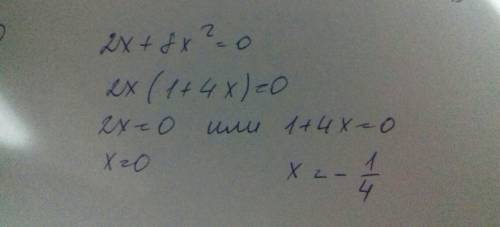 2x+8x²=0
2x(1+4x)=0
2x=0 или 1+4x=0
x=0 x=-1/4